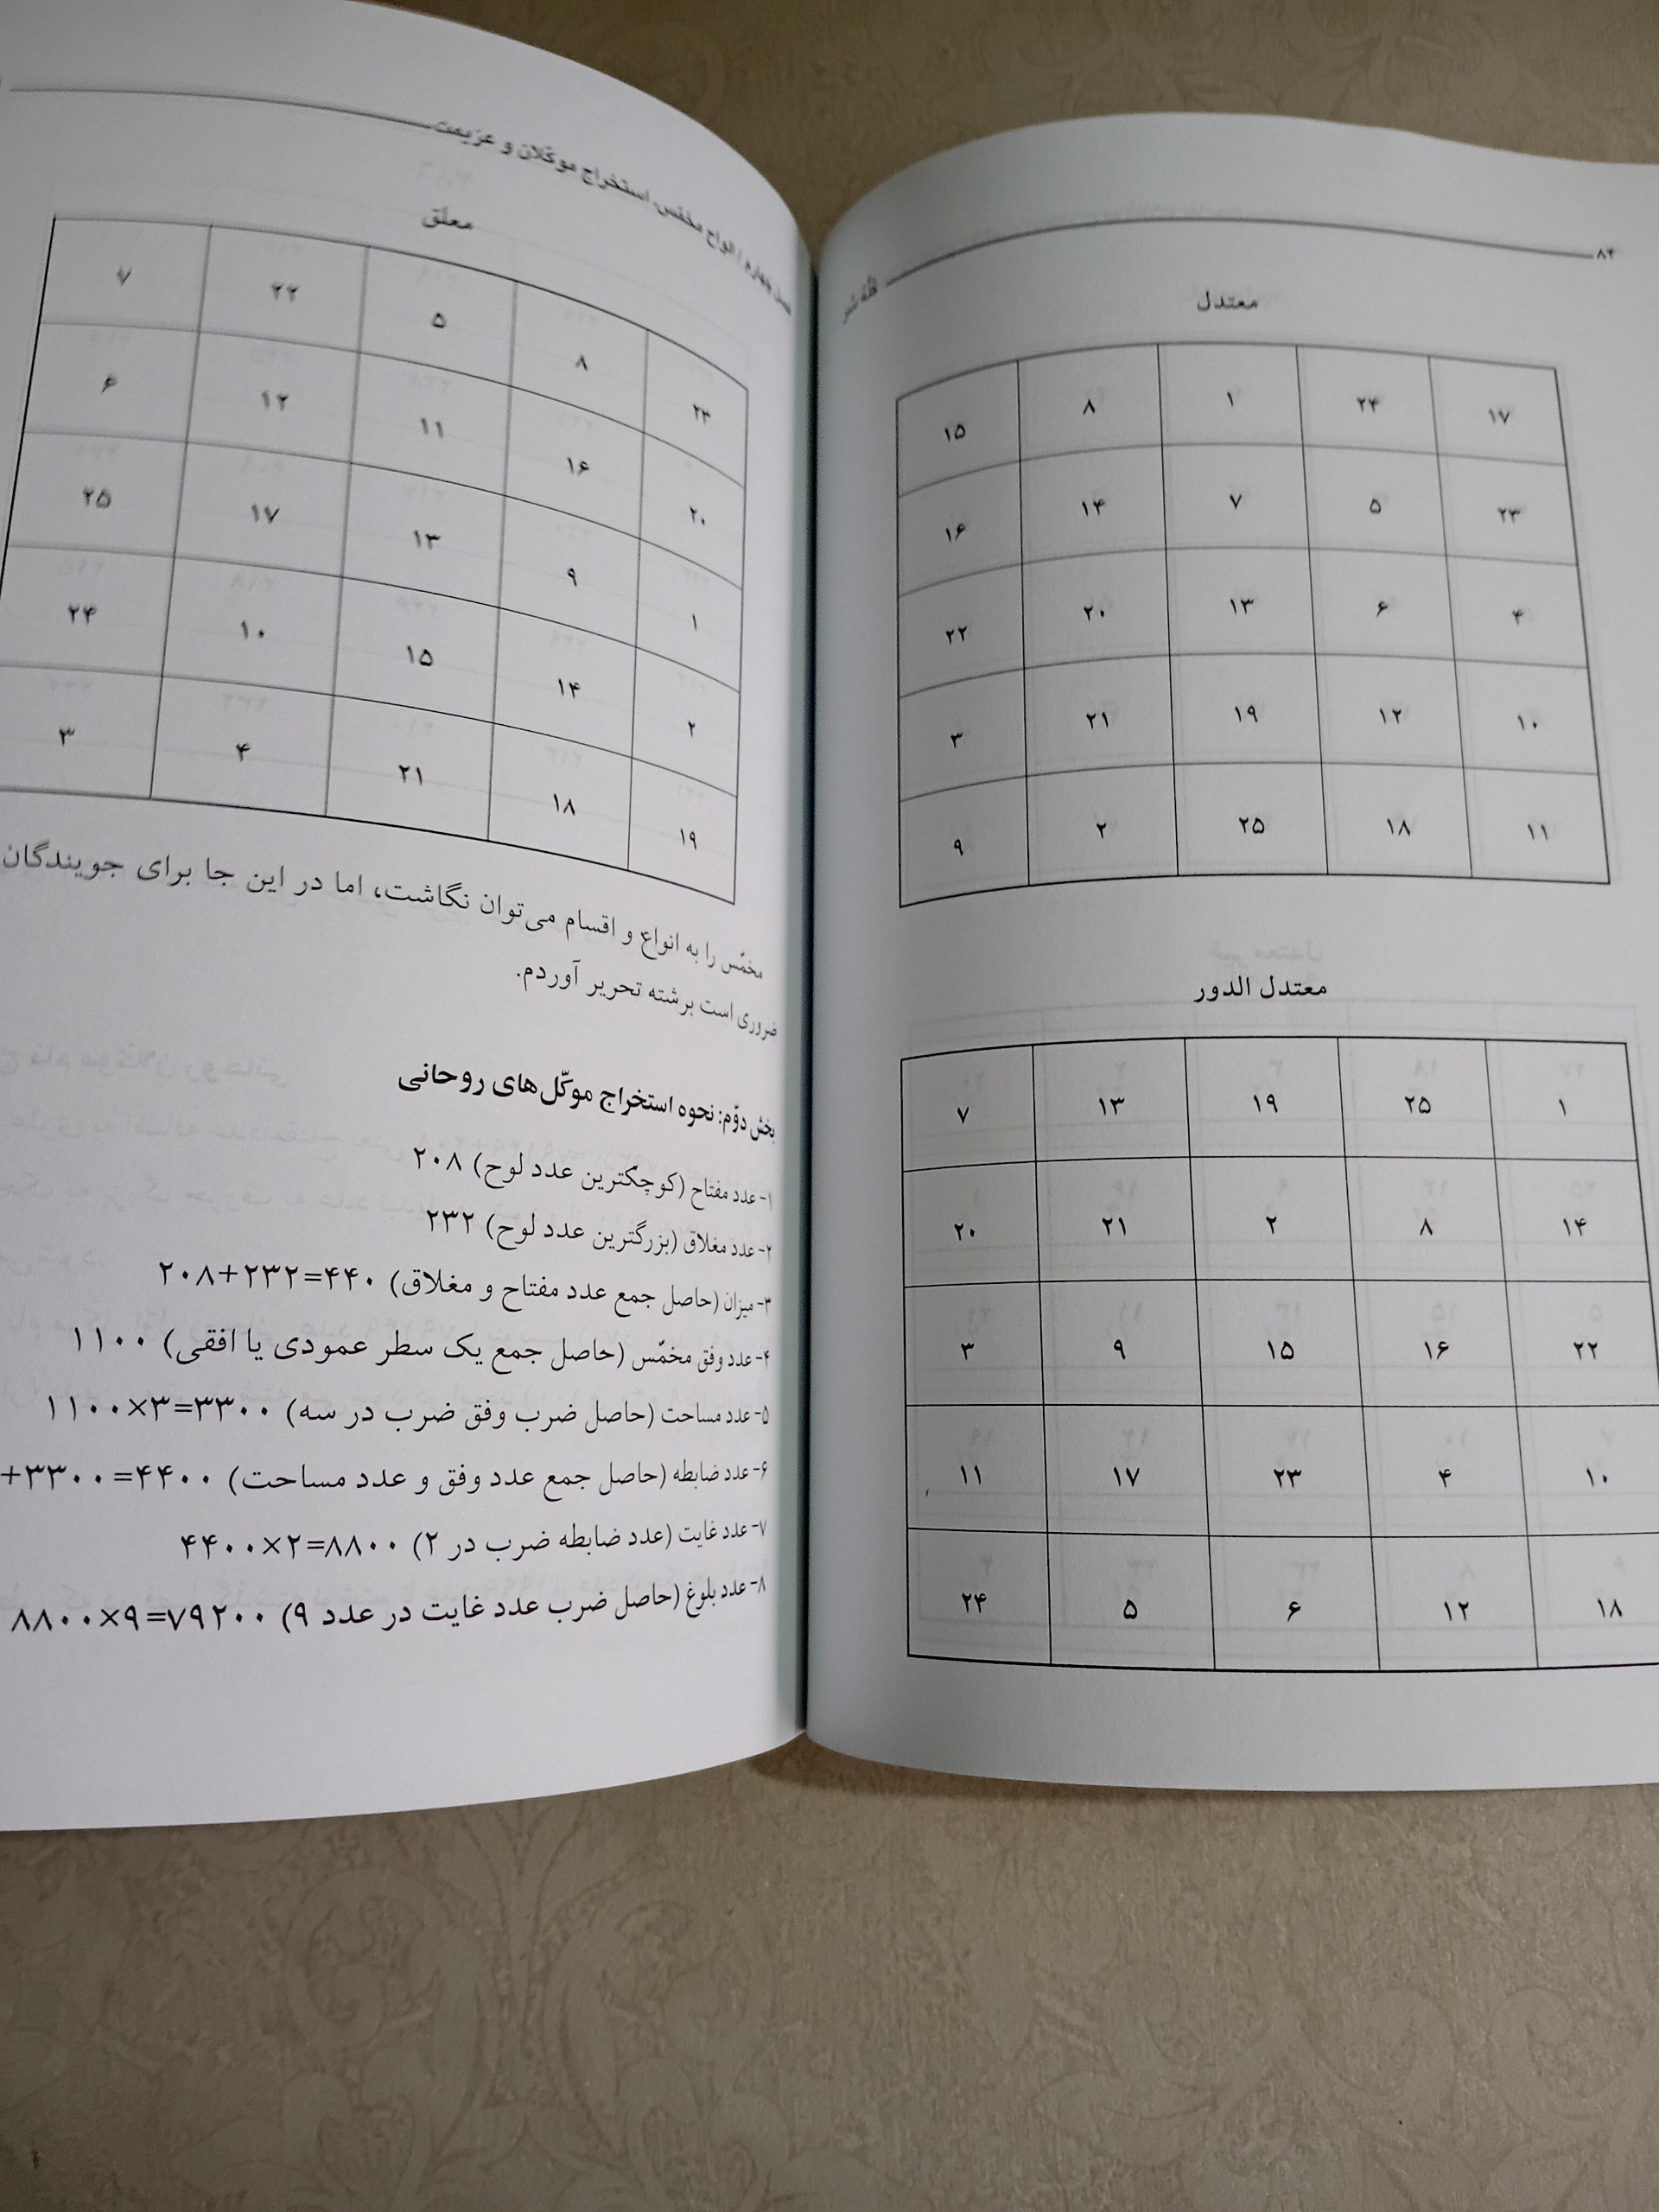 ۸۴
معتدل
۱۷ ۲۴ ۱ ۸ ۱۵
۲۳ ۵ ۷ ۱۴ ۱۶
۴ ۶ ۱۳ ۲۰ ۲۲
۱۰ ۱۲ ۱۹ ۲۱ ۳
۱۱ ۱۸ ۲۵ ۲ ۹
معتدل الدور
۱ ۲۵ ۱۹ ۱۳ ۷
۱۴ ۸ ۲ ۲۱ ۲۰
۲۲ ۱۶ ۱۵ ۹ ۳
۱۰ ۴ ۲۳ ۱۷ ۱۱
۱۸ ۱۲ ۶ ۵ ۲۴
فصل چهارم / الواح مخمّس، استخراج موکّلان و عزیمت
معلق
۲۳ ۸ ۵ ۲۲ ۷
۲۰ ۱۶ ۱۱ ۱۲ ۶
۱ ۹ ۱۳ ۱۷ ۲۵
۲ ۱۴ ۱۵ ۱۰ ۲۴
۱۹ ۱۸ ۲۱ ۴ ۳
مخمّس را به انواع و اقسام می‌توان نگاشت، اما در این جا برای جویندگان
ضروری است برشته تحریر آوردم.
بخش دوّم: نحوه استخراج موکّل‌های روحانی
۱- عدد مفتاح (کوچکترین عدد لوح) ۲۰۸
۲- عدد مغلاق (بزرگترین عدد لوح) ۲۳۲
۳- میزان (حاصل جمع عدد مفتاح و مغلاق) ۲۰۸+۲۳۲=۴۴۰
۴- عدد وفق مخمّس (حاصل جمع یک سطر عمودی یا افقی) ۱۱۰۰
۵- عدد مساحت (حاصل ضرب وفق ضرب در سه) ۱۱۰۰×۳=۳۳۰۰
۶- عدد ضابطه (حاصل جمع عدد وفق و عدد مساحت) +۳۳۰۰=۴۴۰۰
۷- عدد غایت (عدد ضابطه ضرب در ۲) ۴۴۰۰×۲=۸۸۰۰
۸- عدد بلوغ (حاصل ضرب عدد غایت در عدد ۹) ۸۸۰۰×۹=۷۹۲۰۰